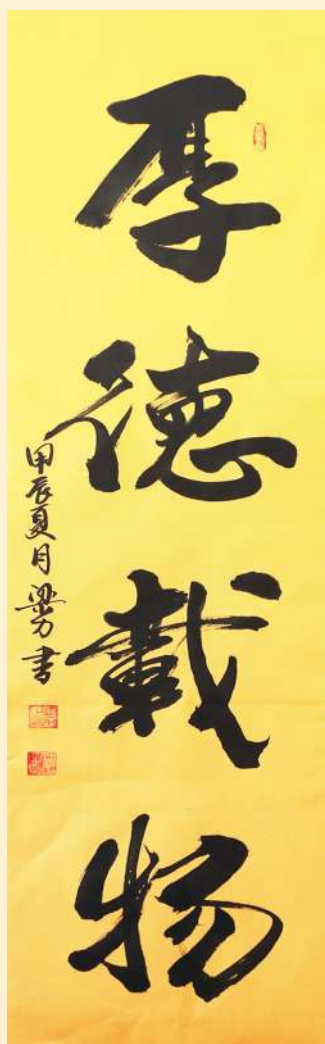 厚德载物
甲辰夏月梁力書